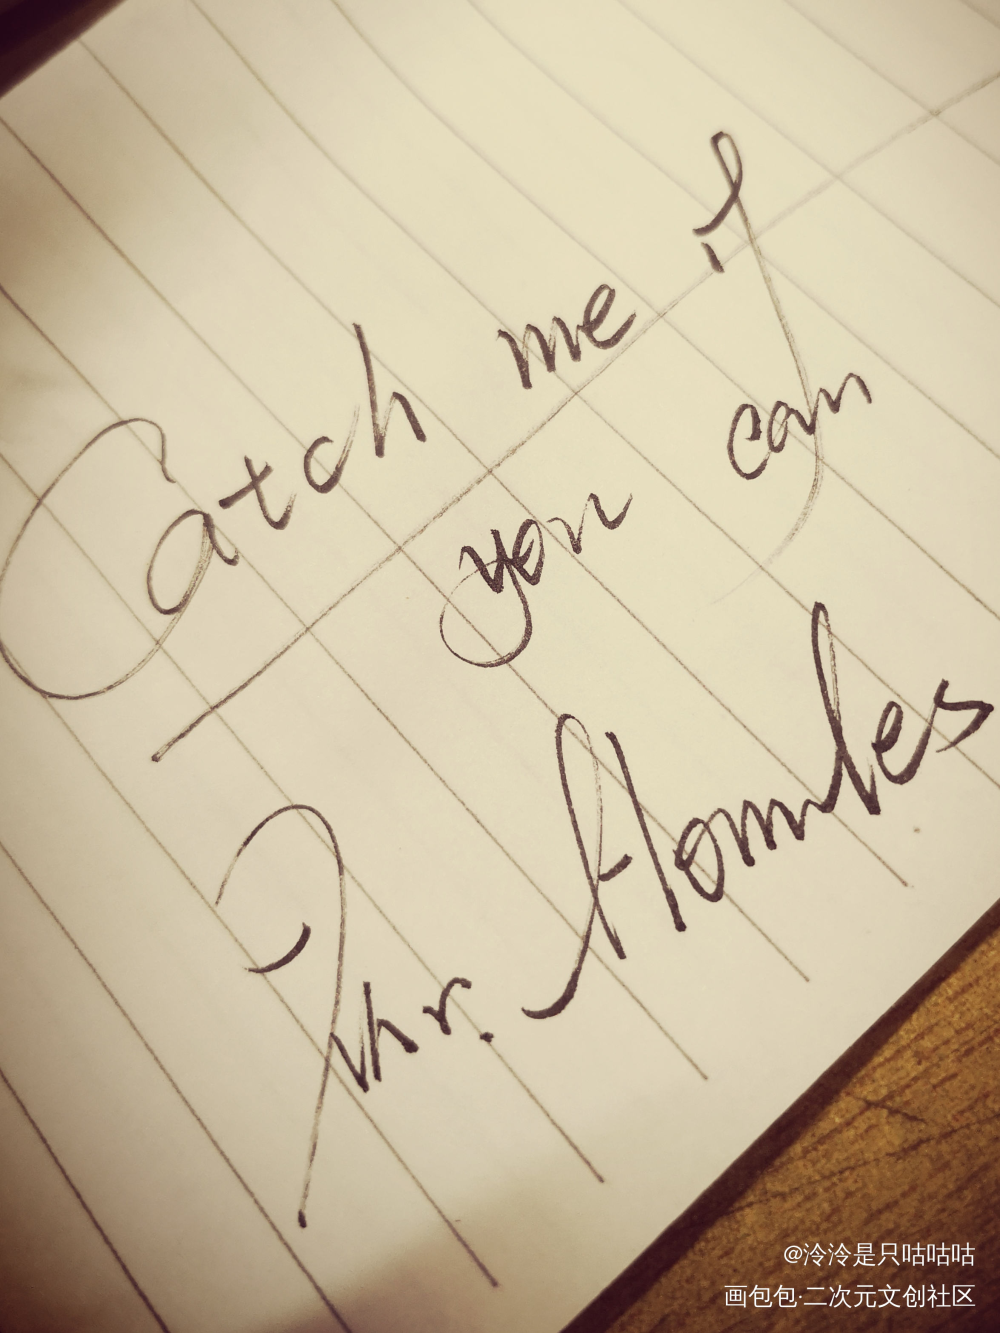 Catch me if
you can
Mr. Holmes
@泠泠是只咕咕咕
画包包·二次元文创社区